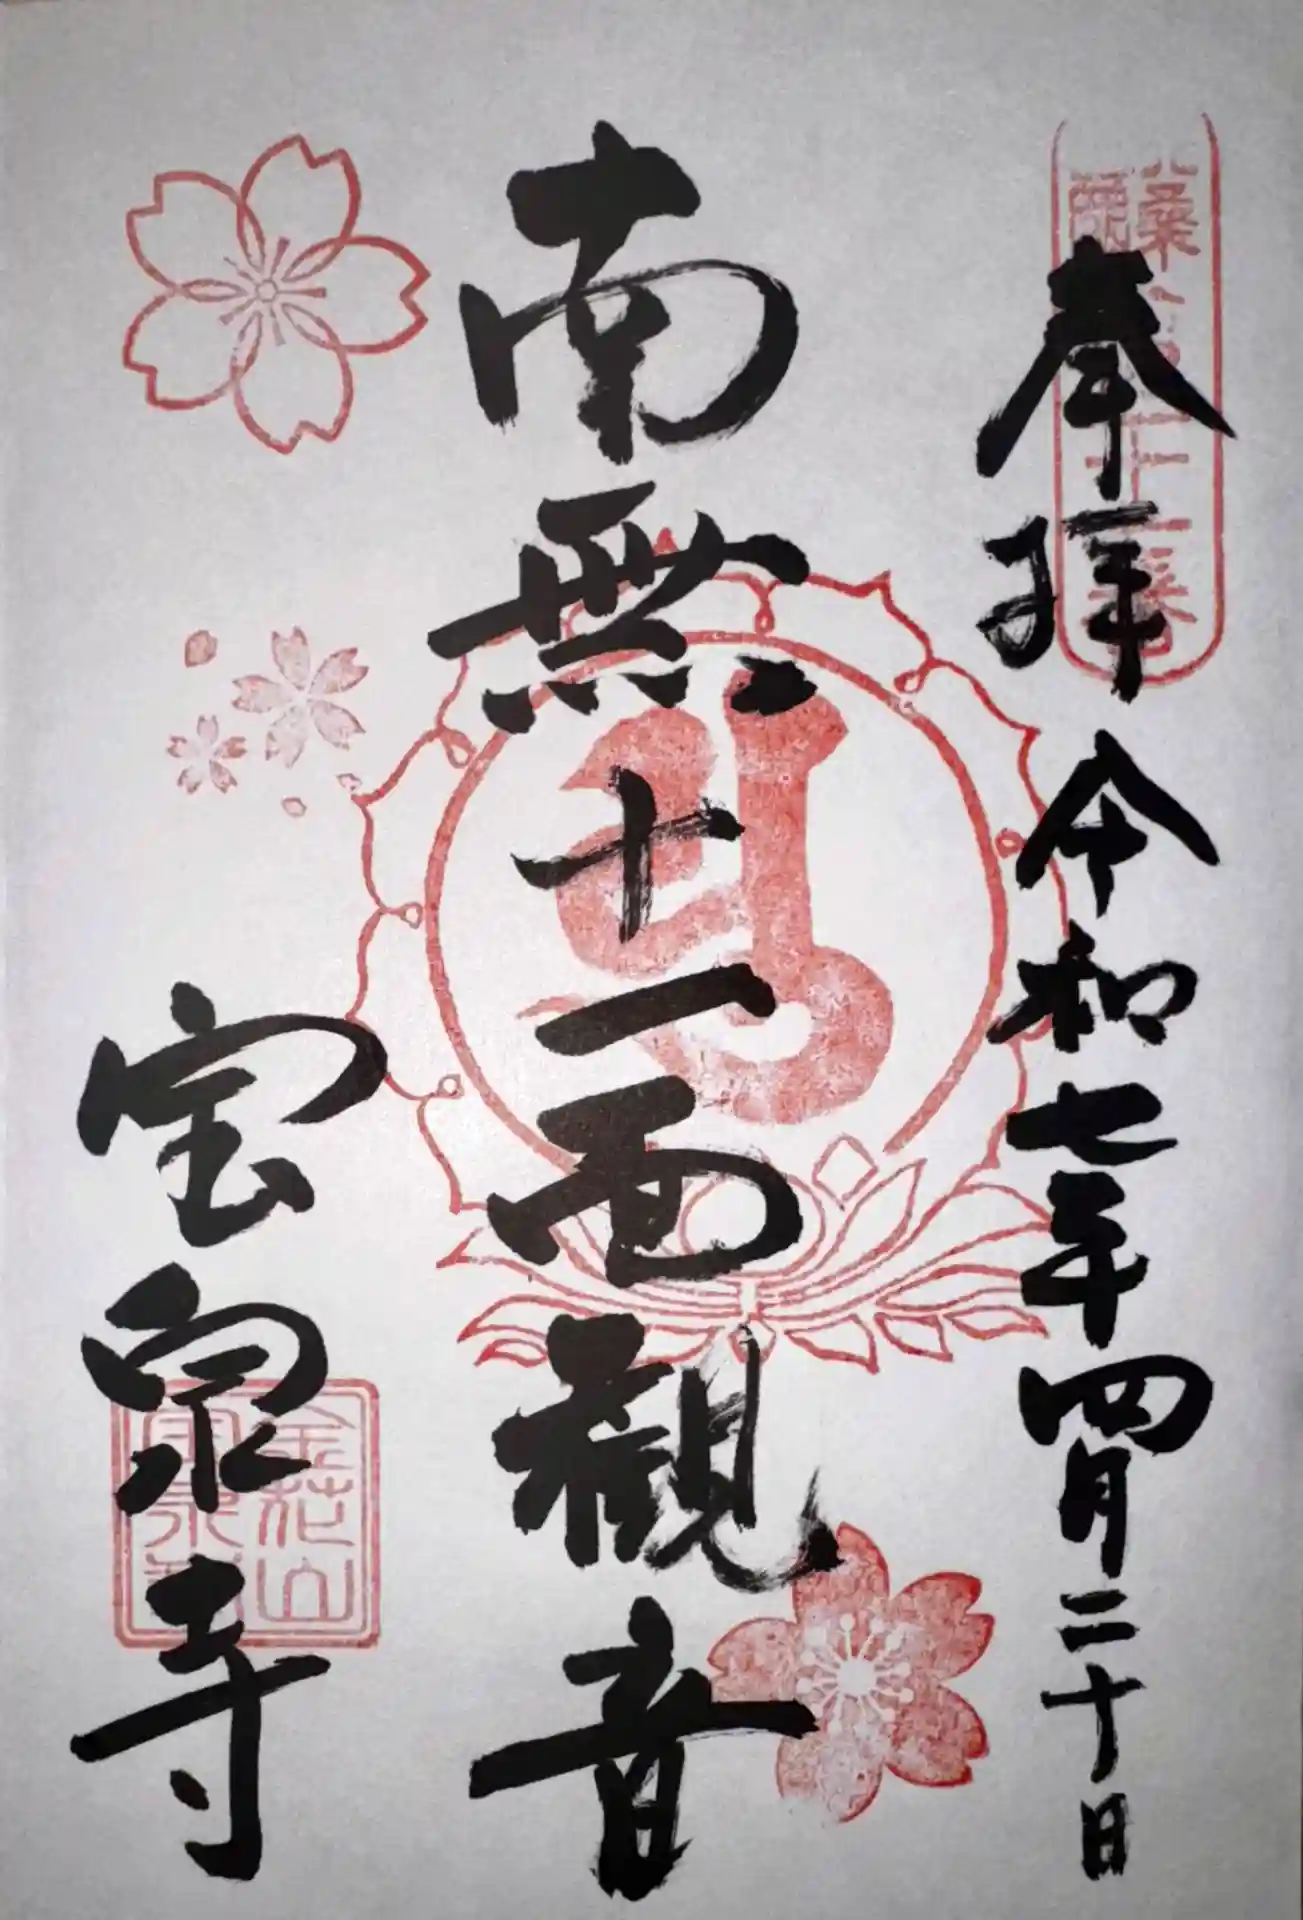 奉拝 令和七年四月二十日
南無十一面観音
宝泉寺
金花山